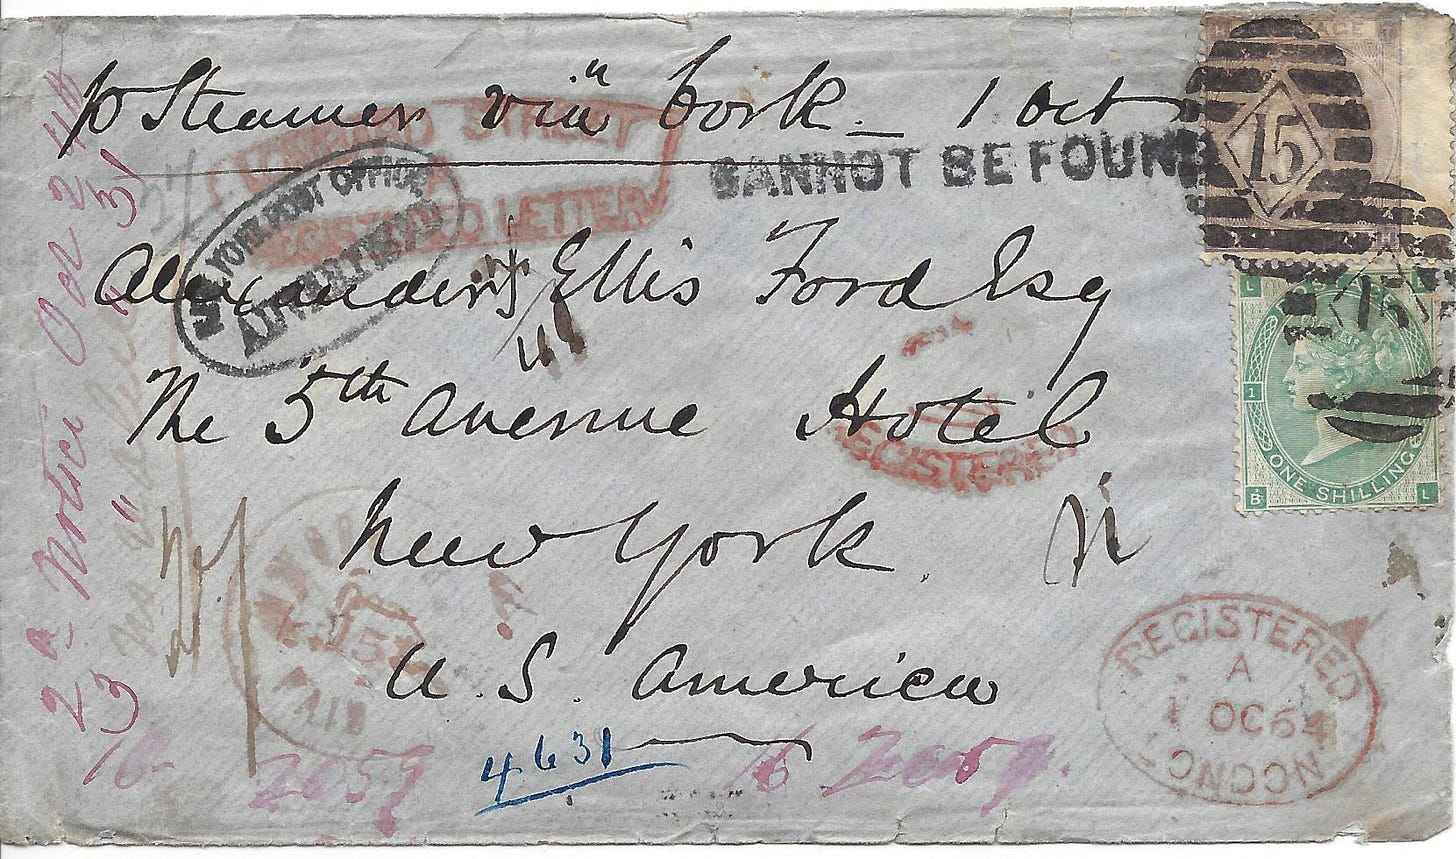 p Steamer via Cork _ 1 Oct
LOMBARD STREET
REGISTERED LETTER
CANNOT BE FOUND
15
NEW YORK POST OFFICE
ADVERTISED
Alexander Ellis Ford Esq
The 5th Avenue Hotel
REGISTERED
New York
U. S. America
L
1
ONE SHILLING
B L
REGISTERED
A
1 OC 64
LONDON
4631
2059
2059.
2d Notice Oct 24th
3 31